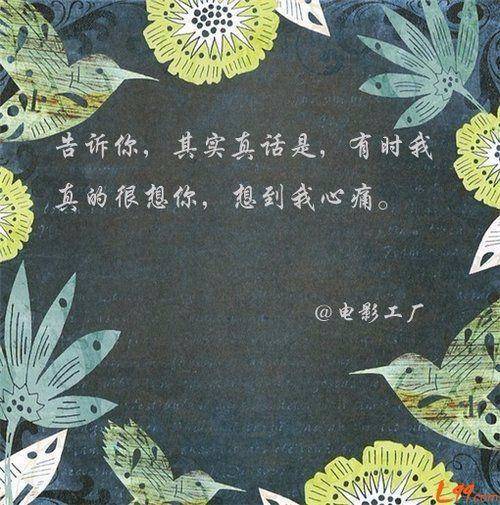 告诉你，其实真话是，有时我
真的很想你，想到我心痛。
@电影工厂
L99.com